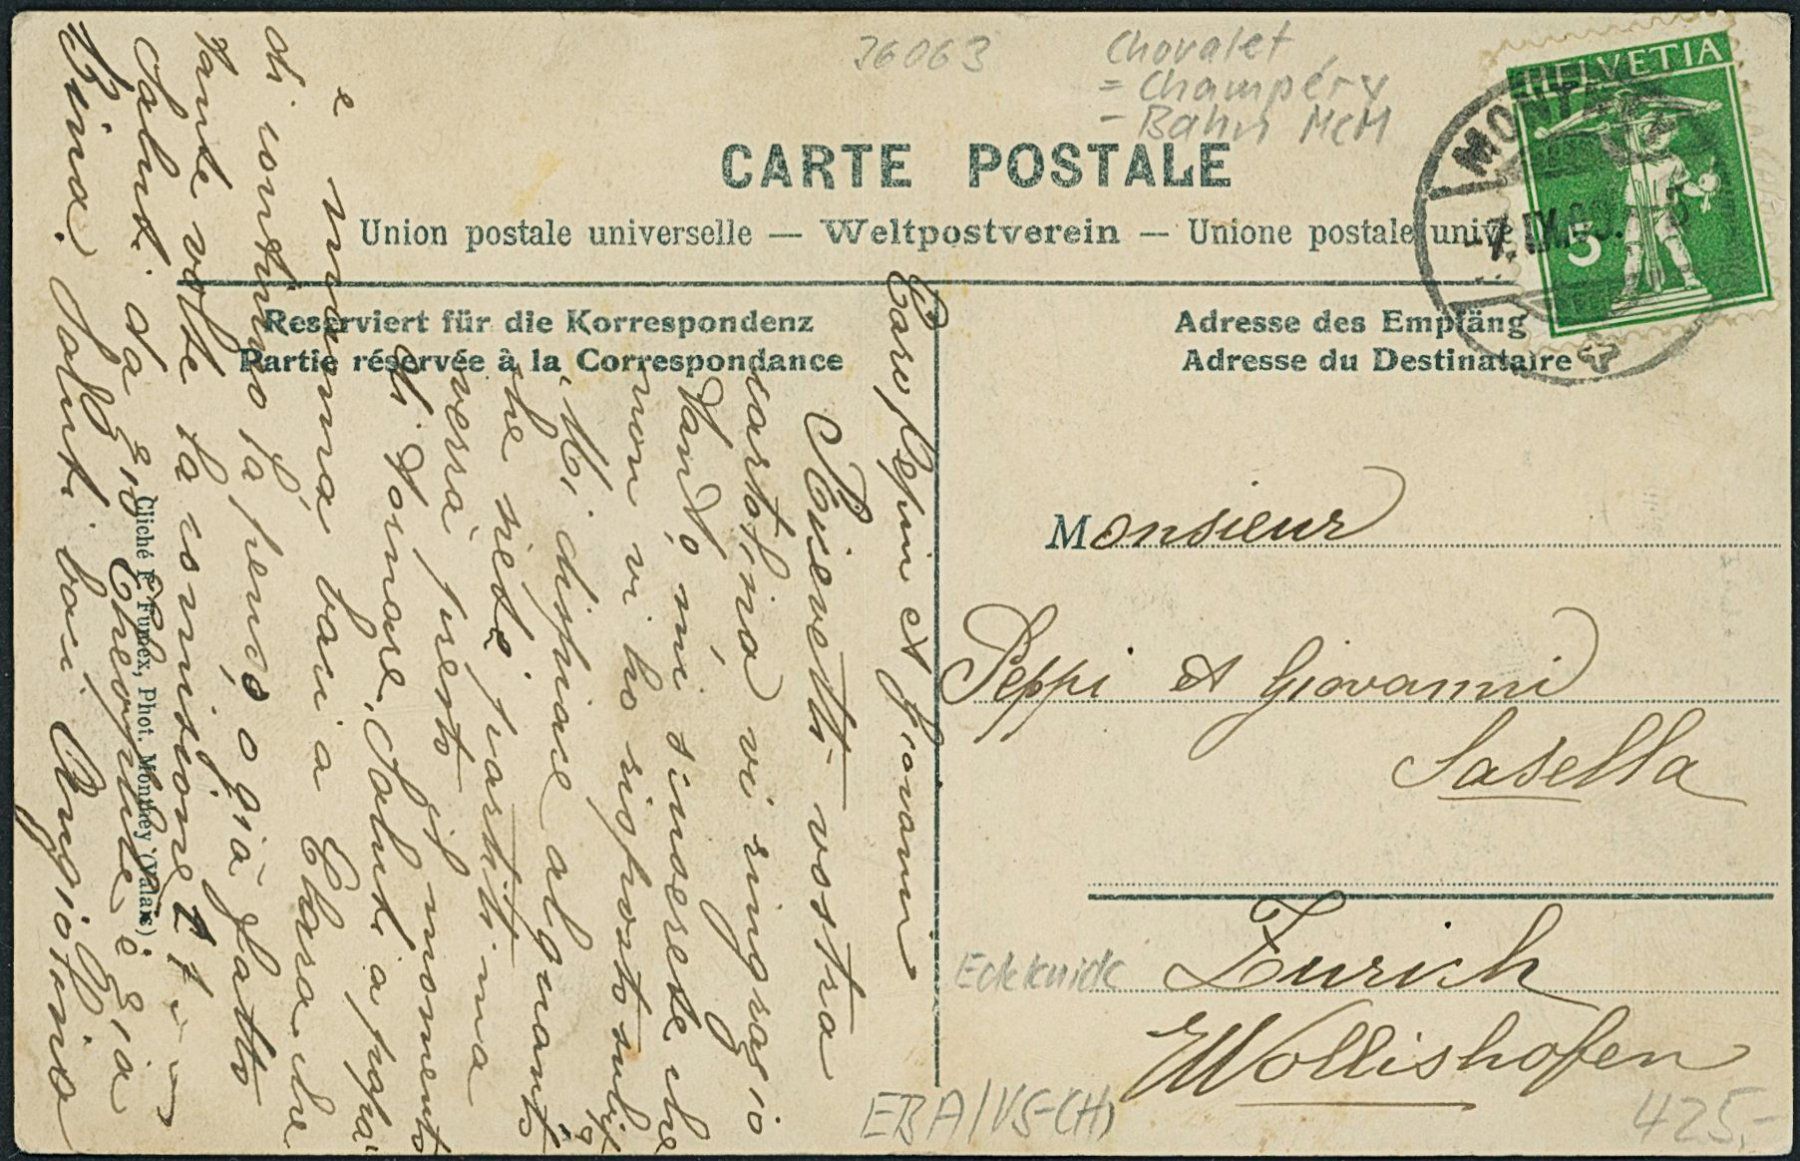 26063
Chovalet
= Champéry
- Bahn McM
HELVETIA
5
MONTHEY
7.IX.09.
CARTE POSTALE
Union postale universelle — Weltpostverein — Unione postale unive
Reserviert für die Korrespondenz
Partie réservée à la Correspondance
Adresse des Empfäng
Adresse du Destinataire
Caro Pepin et Giovanni
Ricevetti vostra
cartolina vi ringrasio
tando, mi sincresce che
non vi ho risposto subit
Mi dispiace alquanto
che siete partiti ma
verrà presto il momento
di tornare, Saluti a papà
e mamma baci a Clara che
di continuo la penso o già fatto
tante volte la comisione
Saluti da gio Cleophe è già
Bina. Saluti baci Angiolina
Cliché F Fumex, Phot. Monthey (Valais)
Monsieur
Peppi et Giovanni
Sasella
Zurich
Wollishofen
Eckknick
EBA/VS-(H)
425,-